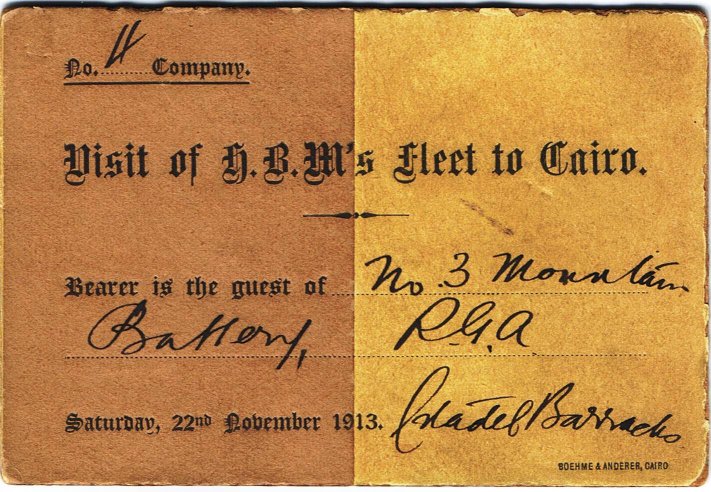 No. 4 Company.
Visit of H.B.M's Fleet to Cairo.
Bearer is the guest of No. 3 Mountain
Battery, R.G.A
Saturday, 22nd November 1913. Citadel Barracks
BOEHME & ANDERER, CAIRO